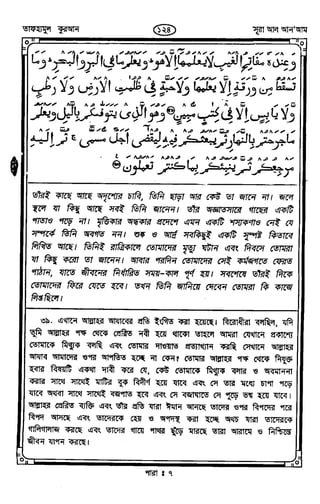 তাফহীমুল কুরআন
১২৪
সূরা আল আন'আম
وَعِنْدَهٗ مَفَاتِحُ الْغَيْبِ لَا يَعْلَمُهَا اِلَّا هُوَ وَيَعْلَمُ مَا فِى الْبَرِّ وَالْبَحْرِ وَمَا
تَسْقُطُ مِنْ وَّرَقَةٍ اِلَّا يَعْلَمُهَا وَلَا حَبَّةٍ فِى ظُلُمٰتِ الْاَرْضِ وَلَا رَطْبٍ
وَّلَا يَابِسٍ اِلَّا فِى كِتٰبٍ مُّبِيْنٍ وَهُوَ الَّذِىْ يَتَوَفّٰىكُمْ بِالَّيْلِ وَيَعْلَمُ
مَا جَرَحْتُمْ بِالنَّهَارِ ثُمَّ يَبْعَثُكُمْ فِيْهِ لِيُقْضٰٓى اَجَلٌ مُّسَمًّى ثُمَّ اِلَيْهِ
مَرْجِعُكُمْ ثُمَّ يُنَبِّئُكُمْ بِمَا كُنْتُمْ تَعْمَلُوْنَ
তাঁরই কাছে আছে অদৃশ্যের চাবি, তিনি ছাড়া আর কেউ তা জানে না। জলে
স্থলে যা কিছু আছে সবই তিনি জানেন। তাঁর অজ্ঞাতসারে গাছের একটি
পাতাও পড়ে না। মৃত্তিকার অন্ধকার প্রদেশে এমন একটি শস্যকণাও নেই যে
সম্পর্কে তিনি অবগত নন। শুষ্ক ও আর্দ্র সবকিছুই একটি সুস্পষ্ট কিতাবে
লিখিত আছে। তিনিই রাত্রিকালে তোমাদের মৃত্যু ঘটান এবং দিবসে তোমরা
যা কিছু করো তা জানেন। আবার পরদিন তোমাদের সেই কর্মজগতে ফেরত
পাঠান, যাতে জীবনের নির্ধারিত সময়-কাল পূর্ণ হয়। সবশেষে তাঁরই দিকে
তোমাদের ফিরে যেতে হবে। তখন তিনি জানিয়ে দেবেন তোমরা কি কাজে
লিপ্ত ছিলে।
৩৯. এখানে আল্লাহর আযাবের প্রতি ইংগিত করা হয়েছে। বিরোধীরা বলছিল, যদি
তুমি আল্লাহর পক্ষ থেকে প্রেরিত নবী হয়ে থাকো তাহলে আমরা যেখানে প্রকাশ্যে
তোমাকে মিথ্যুক বলছি এবং তোমার দাওয়াত প্রত্যাখ্যান করছি সেখানে আল্লাহর
আযাব আমাদের ওপর আপতিত হচ্ছে না কেন? তোমার আল্লাহর পক্ষ থেকে নিযুক্ত
হবার বিষয়টি একথা দাবী করে যে, কেউ তোমাকে মিথ্যুক বলার ও অবমাননা
করার সাথে সাথেই মাটির বুক বিদীর্ণ হয়ে যাবে এবং সে তার মধ্যে চাপা পড়ে
যাবে অথবা সাথে সাথেই বজ্রপাত হবে এবং সে বজ্রাঘাতে সে পুড়ে ভস্ম হয়ে যাবে।
আল্লাহর প্রেরিত ব্যক্তি এবং তাঁর প্রতি যারা ঈমান আনছে তাদের ওপর বিপদের পরে
বিপদ আসছে এবং তাদেরকে হেয় ও অপদস্থ করা হচ্ছে অথচ যারা তাদেরকে
গালিগালাজ করছে এবং তাদের গায়ে পাথর ছুঁড়ে মারছে তারা আরামে ও নিশ্চিন্তে
জীবন যাপন করছে।
পারা : ৭